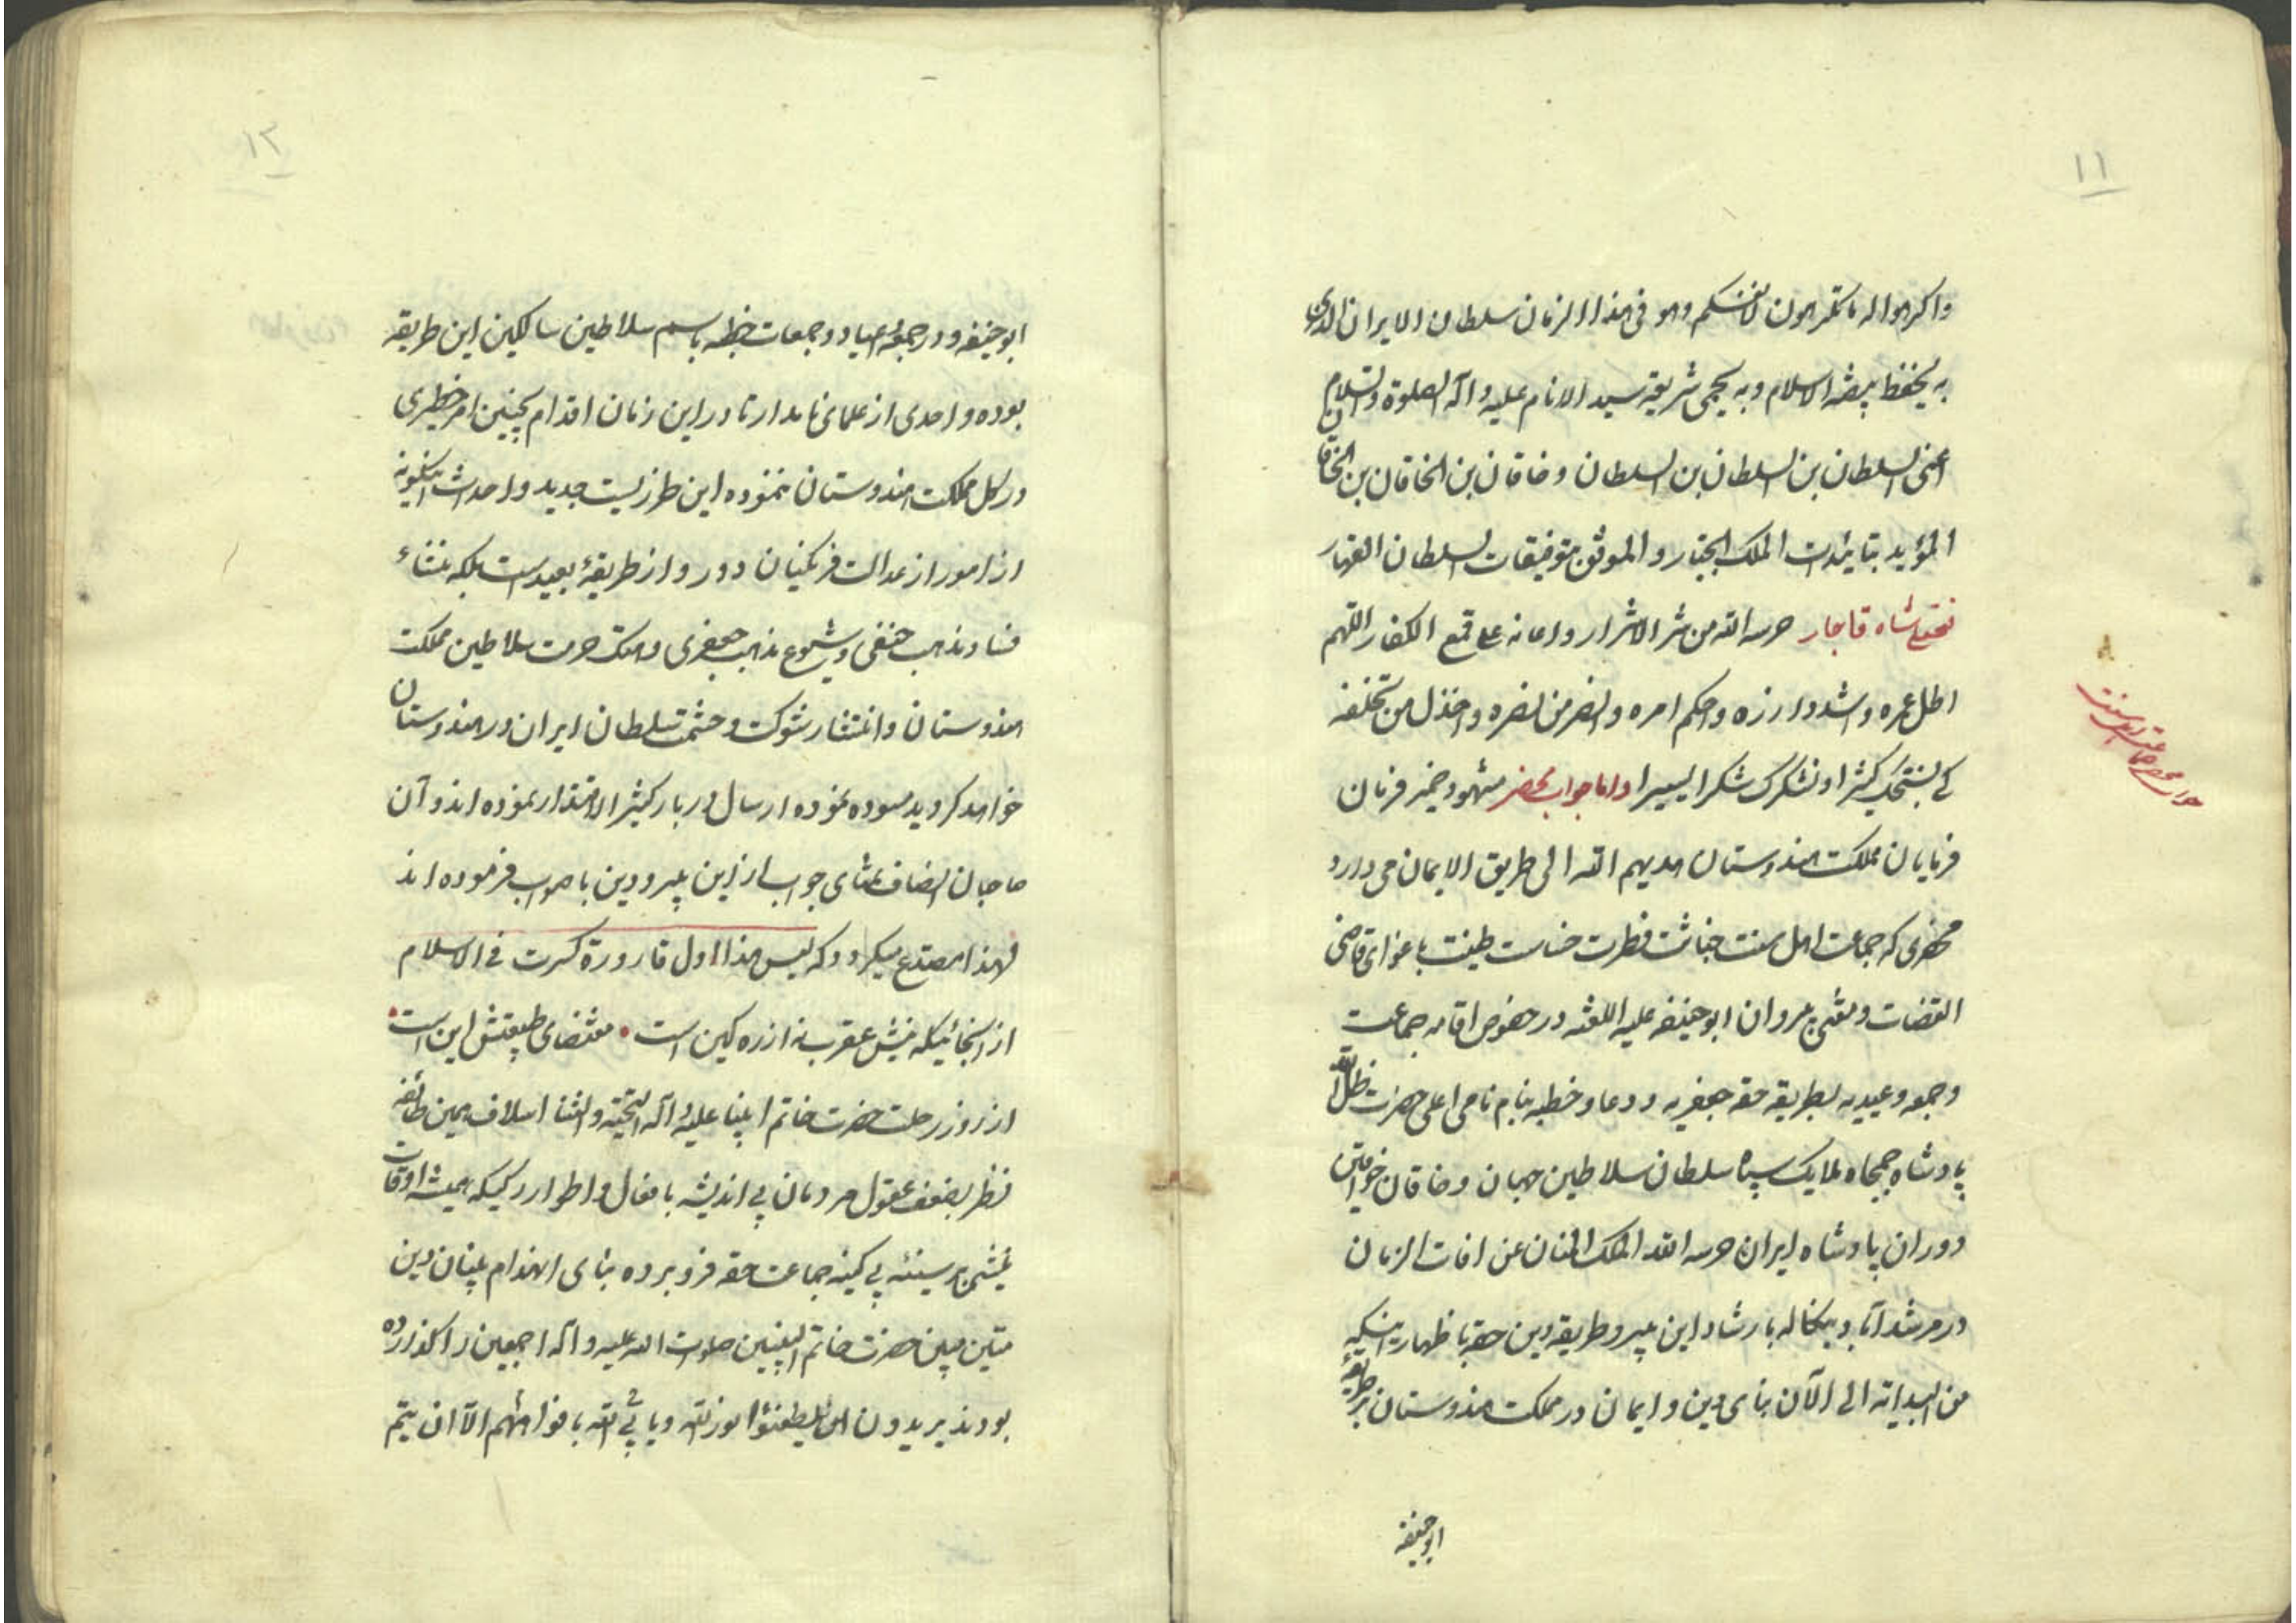 ۱۱
واکرهوا له ما تکرهون لانفسکم وهو فی هذا الزمان سلطان الایران الذی
به یحفظ بیضه الاسلام و به یحمی شریعة سید الانام علیه و آله الصلوة والسلام
اعنی السلطان بن السلطان بن السلطان و خاقان بن الخاقان بن الخاقان
المؤید بتائیدات الملک الجبار و الموثق بتوفیقات السلطان القهار
فتحعلی شاه قاجار حرسه الله من شر الاشرار و اعانه علی قمع الکفار اللهم
اطل عمره و اشدد ازره و احکم امره و انصر من نصره و اخذل من تخلفه
کی نسبحک کثیرا و نشکرک شکرا یسیرا و اما جواب محضر مشهود ضمیر فرمان
فرمایان مملکت هندوستان هدیهم الله الی طریق الایمان می دارد
محضری که جماعت اهل سنت خباثت فطرت خساست طینت باغوای قاضی
القضات و مفتی پیروان ابوحنیفه علیه اللعنه در خصوص اقامه جماعت
و جمعه و عیدیه بطریقه حقه جعفریه و دعا و خطبه بنام نامی اعلی حضرت ظل الله
پادشاه جمجاه ملایک سپاه سلطان سلاطین جهان و خاقان خواقین
دوران پادشاه ایران حرسه الله الملک المنان عن افات الزمان
در مرشدآباد بنکاله بارشاد این پیرو طریقه دین حقه باظهار اینکه
من البدایه الی الآن بنای دین و ایمان در مملکت هندوستان بر طریقه
ابوحنیفه
جواب محضر جماعت اهل سنت
۱۲
ابوحنیفه و در جمعه و اعیاد و جمعات خطبه باسم سلاطین سالکین این طریقه
بوده و احدی از علمای نامدار تا در این زمان اقدام بچنین امر خطیری
در کل مملکت هندوستان ننموده این طرزیست جدید و احداث اینگونه
از امور از عدالت فرنکیان دور و از طریقهٔ بعید است بلکه منشاء
فساد مذهب حنفی و شیوع مذهب جعفری و هتک حرمت سلاطین مملکت
هندوستان و انتشار شوکت و حشمت سلطان ایران در هندوستان
خواهد کردید مسوده نموده ارسال دربار کثیر الاقتدار نموده اند و آن
صاحبان انصاف نمثای جواب از این پیرو دین باصواب فرموده اند
لهذا مصدع میکردد که لیس هذا اول قارورة کسرت فی الاسلام
از آنجائیکه نیش عقرب نه از ره کین است • مقتضای طبیعتش این است •
از روز رحلت حضرت خاتم انبیا علیه و آله التحیة والثنا اسلاف همین طائفه
نظر بضعف عقول مردمان بی اندیشه بافعال و اطوار رکیکه همیشه اوقات
نیشی بر سینه بی کینه جماعت حقه فرو برده بنای انهدام بنیان دین
متین مبین حضرت خاتم النبیین صلوات الله علیه و آله اجمعین را گذارده
بودند یریدون ان لیطفئوا نور الله و یابی الله بافواههم الا ان یتم